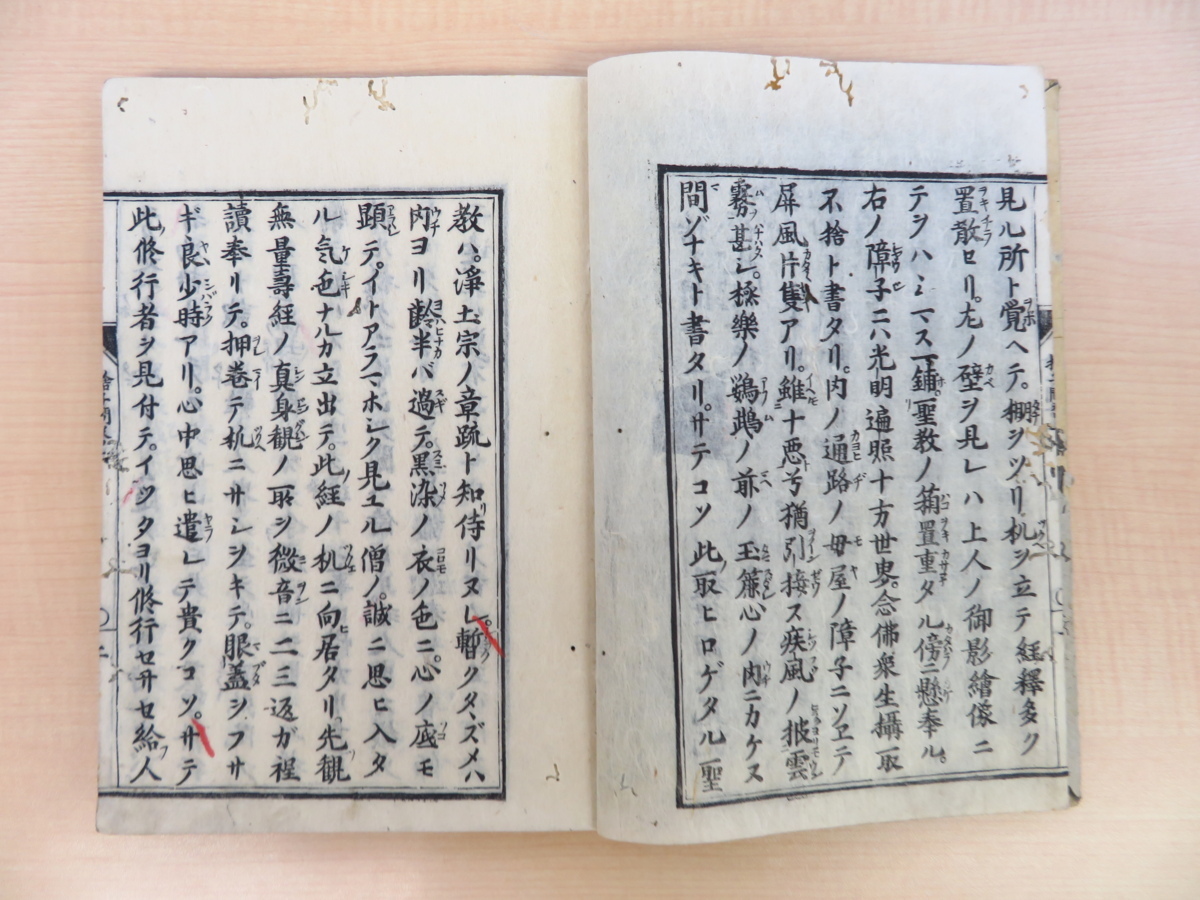 見ル所ト覚ヘテ。棚ヲツリ机ヲ立テ經釋多ク
置散セリ。左ノ壁ヲ見レハ上人ノ御影繪像ニ
テヲハシマス一鋪。聖教ノ箱置重タル傍ニ懸奉ル。
右ノ障子ニハ光明遍照十方世界。念佛衆生攝取
不捨ト書タリ。内ノ通路ノ母屋ノ障子ニソヱテ
屏風片隻アリ。雖十悪兮猶引接ス疾風ノ披雲
霧甚シ。極樂ノ鸚鵡ノ前ノ玉簾心ノ内ニカケヌ
間ゾナキト書タリ。サテコソ此取ヒロゲタル聖
教ハ。淨土宗ノ章疏ト知侍リヌレ。暫クタヽズメハ
内ヨリ齡半バ過テ。黒染ノ衣ノ色ニ。心ノ底モ
顕テ。イトアラマホシク見ユル僧ノ。誠ニ思ヒ入タ
ル気色ナルカ立出テ。此經ノ机ニ向ヒ居タリ。先觀
無量壽經ノ真身観ノ所ヲ微音ニ二三返ガ程
讀奉リテ。押巻テ机ニサシヲキテ。眼蓋ヲフサ
ギ良少時アリ。心中思ヒ遣レテ貴クコソ。サテ
此修行者ヲ見付テ。イヅクヨリ修行セサセ給フ人